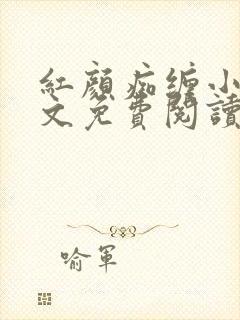 紅顏痴缠小
文免費閱讀
喻軍